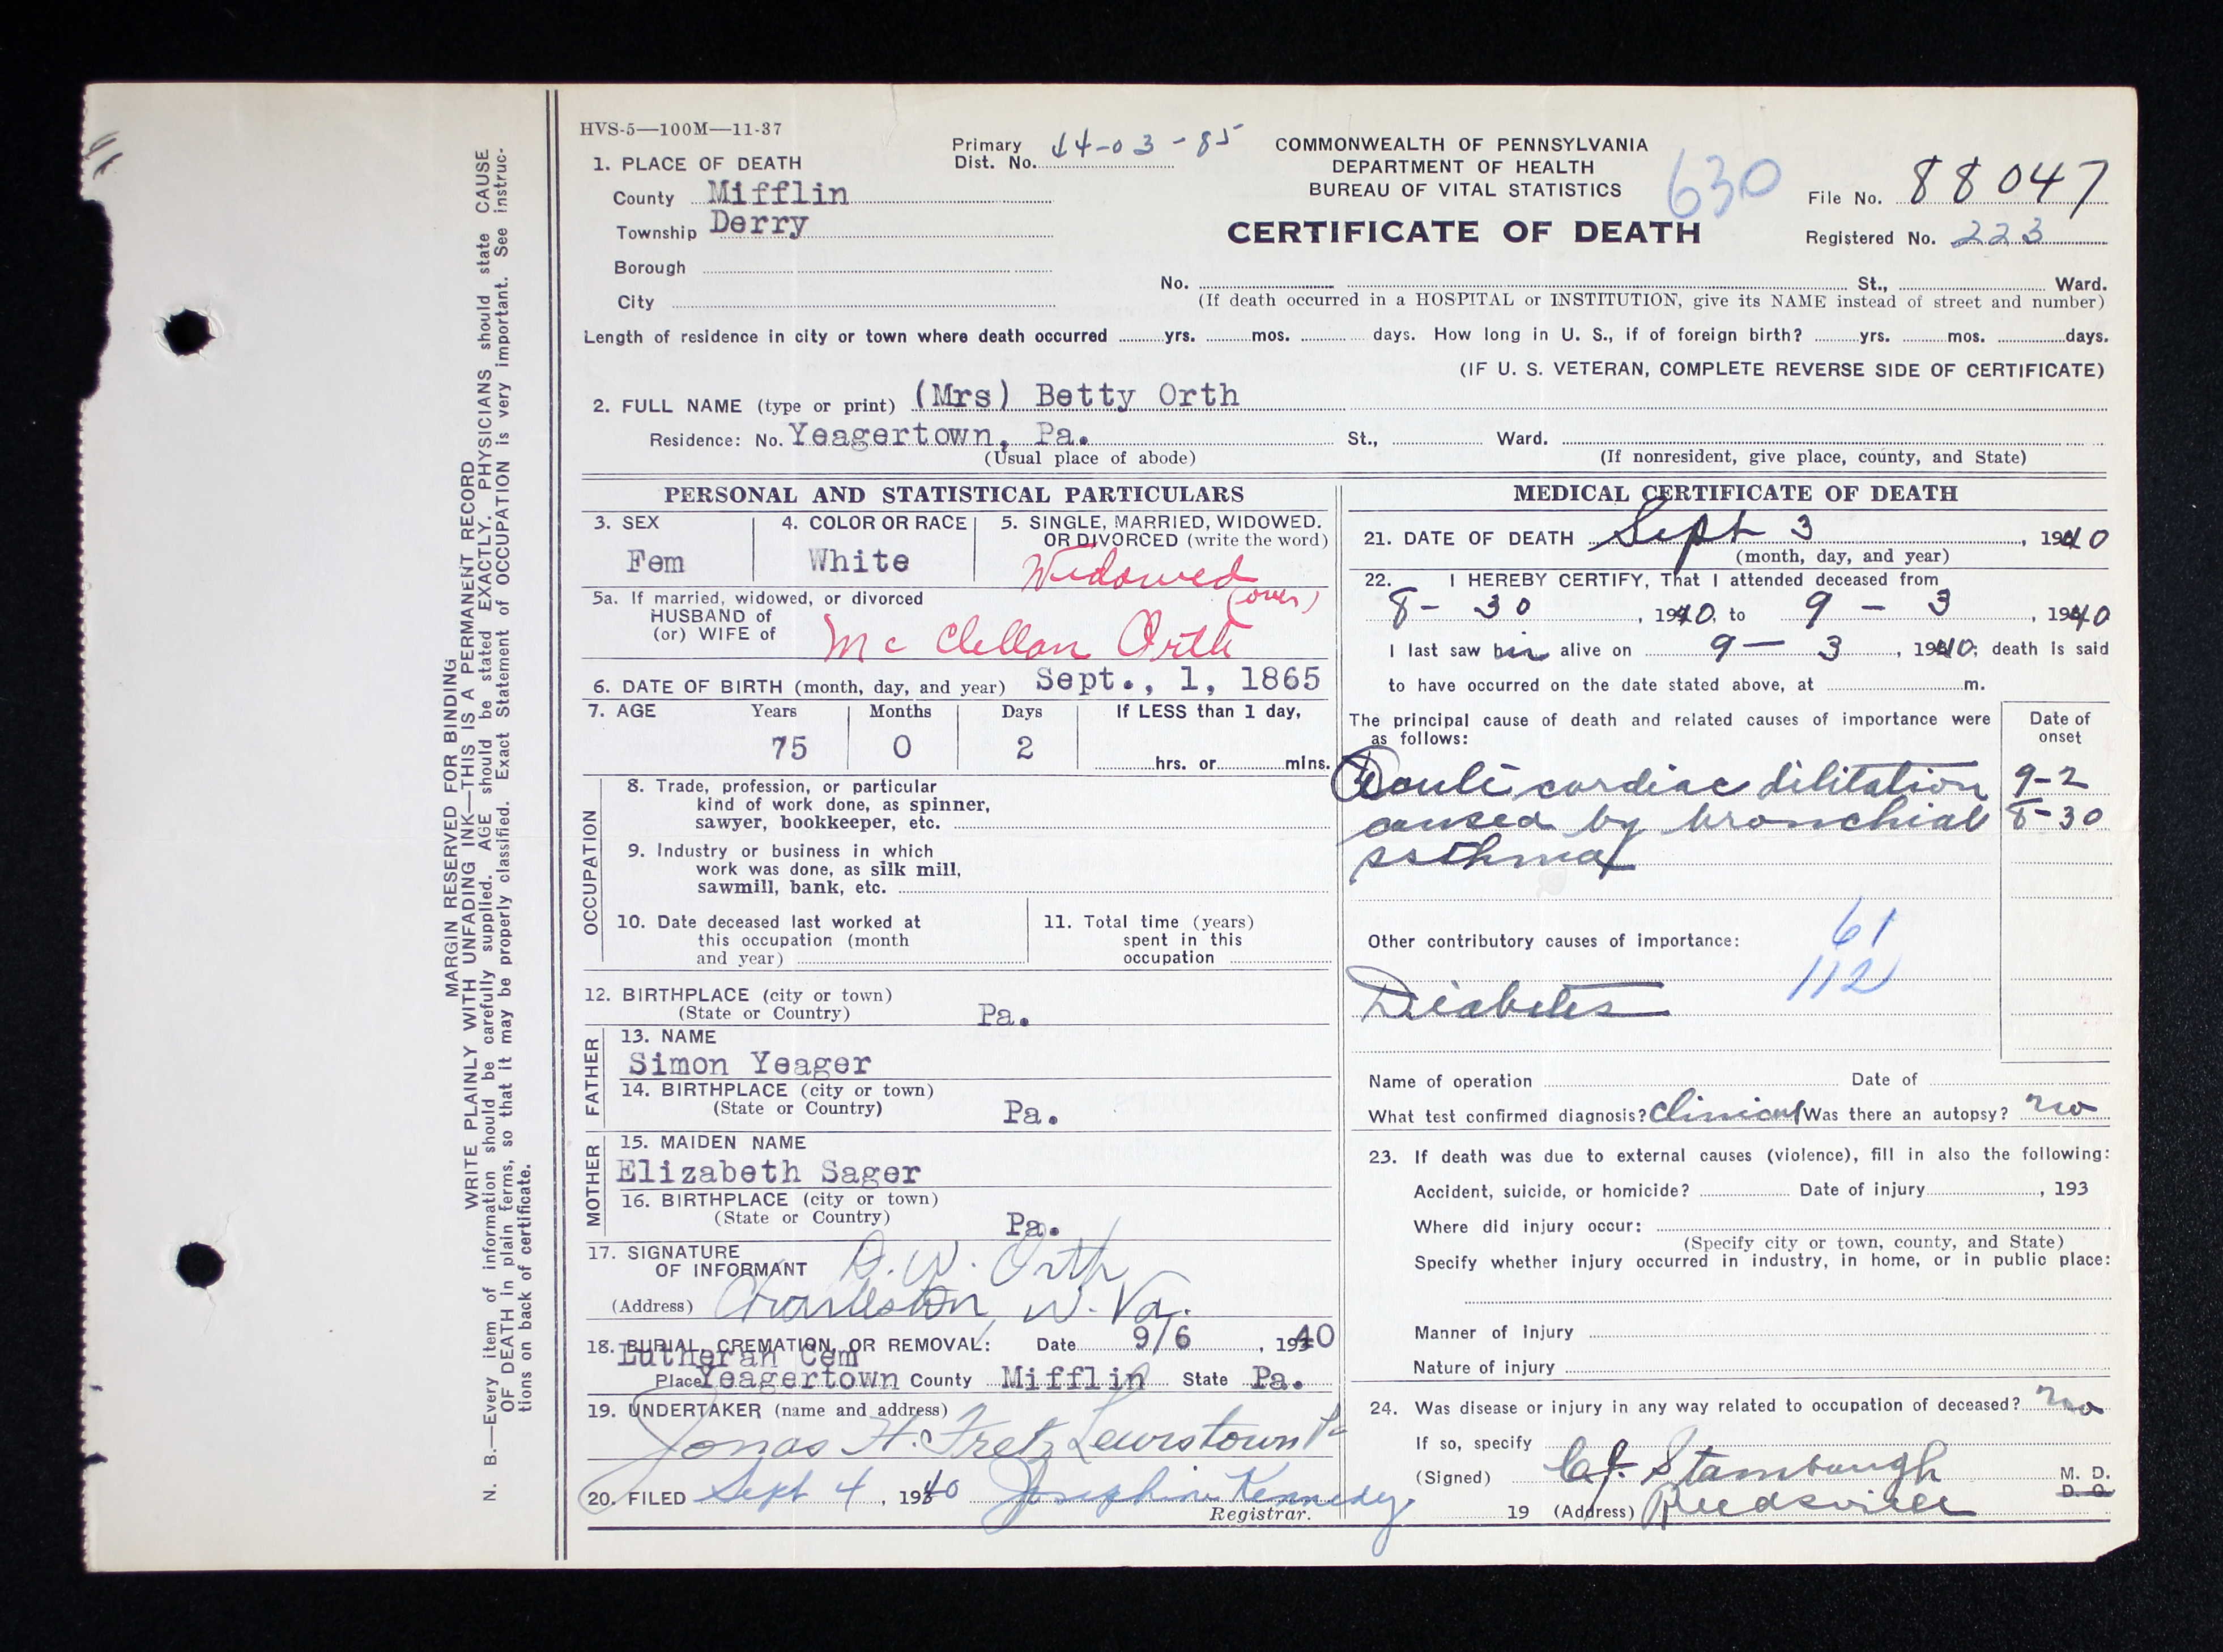 HVS-5—100M—11-37
Primary
Dist. No. 44-03-85
COMMONWEALTH OF PENNSYLVANIA
DEPARTMENT OF HEALTH
BUREAU OF VITAL STATISTICS
CERTIFICATE OF DEATH
630
File No. 88047
Registered No. 223
1. PLACE OF DEATH
County Mifflin
Township Derry
Borough
City
No. St., Ward.
(If death occurred in a HOSPITAL or INSTITUTION, give its NAME instead of street and number)
Length of residence in city or town where death occurred yrs. mos. days. How long in U. S., if of foreign birth? yrs. mos. days.
(IF U. S. VETERAN, COMPLETE REVERSE SIDE OF CERTIFICATE)
2. FULL NAME (type or print) (Mrs) Betty Orth
Residence: No. Yeagertown, Pa. St., Ward.
(Usual place of abode) (If nonresident, give place, county, and State)
PERSONAL AND STATISTICAL PARTICULARS
3. SEX
Fem
4. COLOR OR RACE
White
5. SINGLE, MARRIED, WIDOWED,
OR DIVORCED (write the word)
Widowed
(over)
5a. If married, widowed, or divorced
HUSBAND of
(or) WIFE of Mc Clellan Orth
6. DATE OF BIRTH (month, day, and year) Sept., 1, 1865
7. AGE Years Months Days If LESS than 1 day,
75 0 2 hrs. or mins.
OCCUPATION
8. Trade, profession, or particular
kind of work done, as spinner,
sawyer, bookkeeper, etc.
9. Industry or business in which
work was done, as silk mill,
sawmill, bank, etc.
10. Date deceased last worked at
this occupation (month
and year)
11. Total time (years)
spent in this
occupation
12. BIRTHPLACE (city or town)
(State or Country) Pa.
FATHER
13. NAME
Simon Yeager
14. BIRTHPLACE (city or town)
(State or Country) Pa.
MOTHER
15. MAIDEN NAME
Elizabeth Sager
16. BIRTHPLACE (city or town)
(State or Country) Pa.
17. SIGNATURE
OF INFORMANT D. W. Orth
(Address) Charleston, W. Va.
18. BURIAL, CREMATION, OR REMOVAL: Date 9/6, 1940
Lutheran Cem
Place Yeagertown County Mifflin State Pa.
19. UNDERTAKER (name and address)
Jonas H. Fretz Lewistown Pa
20. FILED Sept 4, 1940 Josephine Kennedy
Registrar.
MEDICAL CERTIFICATE OF DEATH
21. DATE OF DEATH Sept 3, 1940
(month, day, and year)
22. I HEREBY CERTIFY, That I attended deceased from
8-30, 1940, to 9-3, 1940
I last saw her alive on 9-3, 1940; death is said
to have occurred on the date stated above, at m.
The principal cause of death and related causes of importance were
as follows:
Date of
onset
Acute cardiac dilitation 9-2
caused by bronchial 8-30
asthma
Other contributory causes of importance:
61
112
Diabetes
Name of operation Date of
What test confirmed diagnosis? Clinical Was there an autopsy? no
23. If death was due to external causes (violence), fill in also the following:
Accident, suicide, or homicide? Date of injury, 193
Where did injury occur:
(Specify city or town, county, and State)
Specify whether injury occurred in industry, in home, or in public place:
Manner of injury
Nature of injury
24. Was disease or injury in any way related to occupation of deceased? no
If so, specify
(Signed) C. J. Stambaugh M. D.
D. O.
19 (Address) Reedsville
MARGIN RESERVED FOR BINDING
WRITE PLAINLY WITH UNFADING INK—THIS IS A PERMANENT RECORD
N. B.—Every item of information should be carefully supplied. AGE should be stated EXACTLY. PHYSICIANS should state CAUSE
OF DEATH in plain terms, so that it may be properly classified. Exact Statement of OCCUPATION is very important. See instruc-
tions on back of certificate.